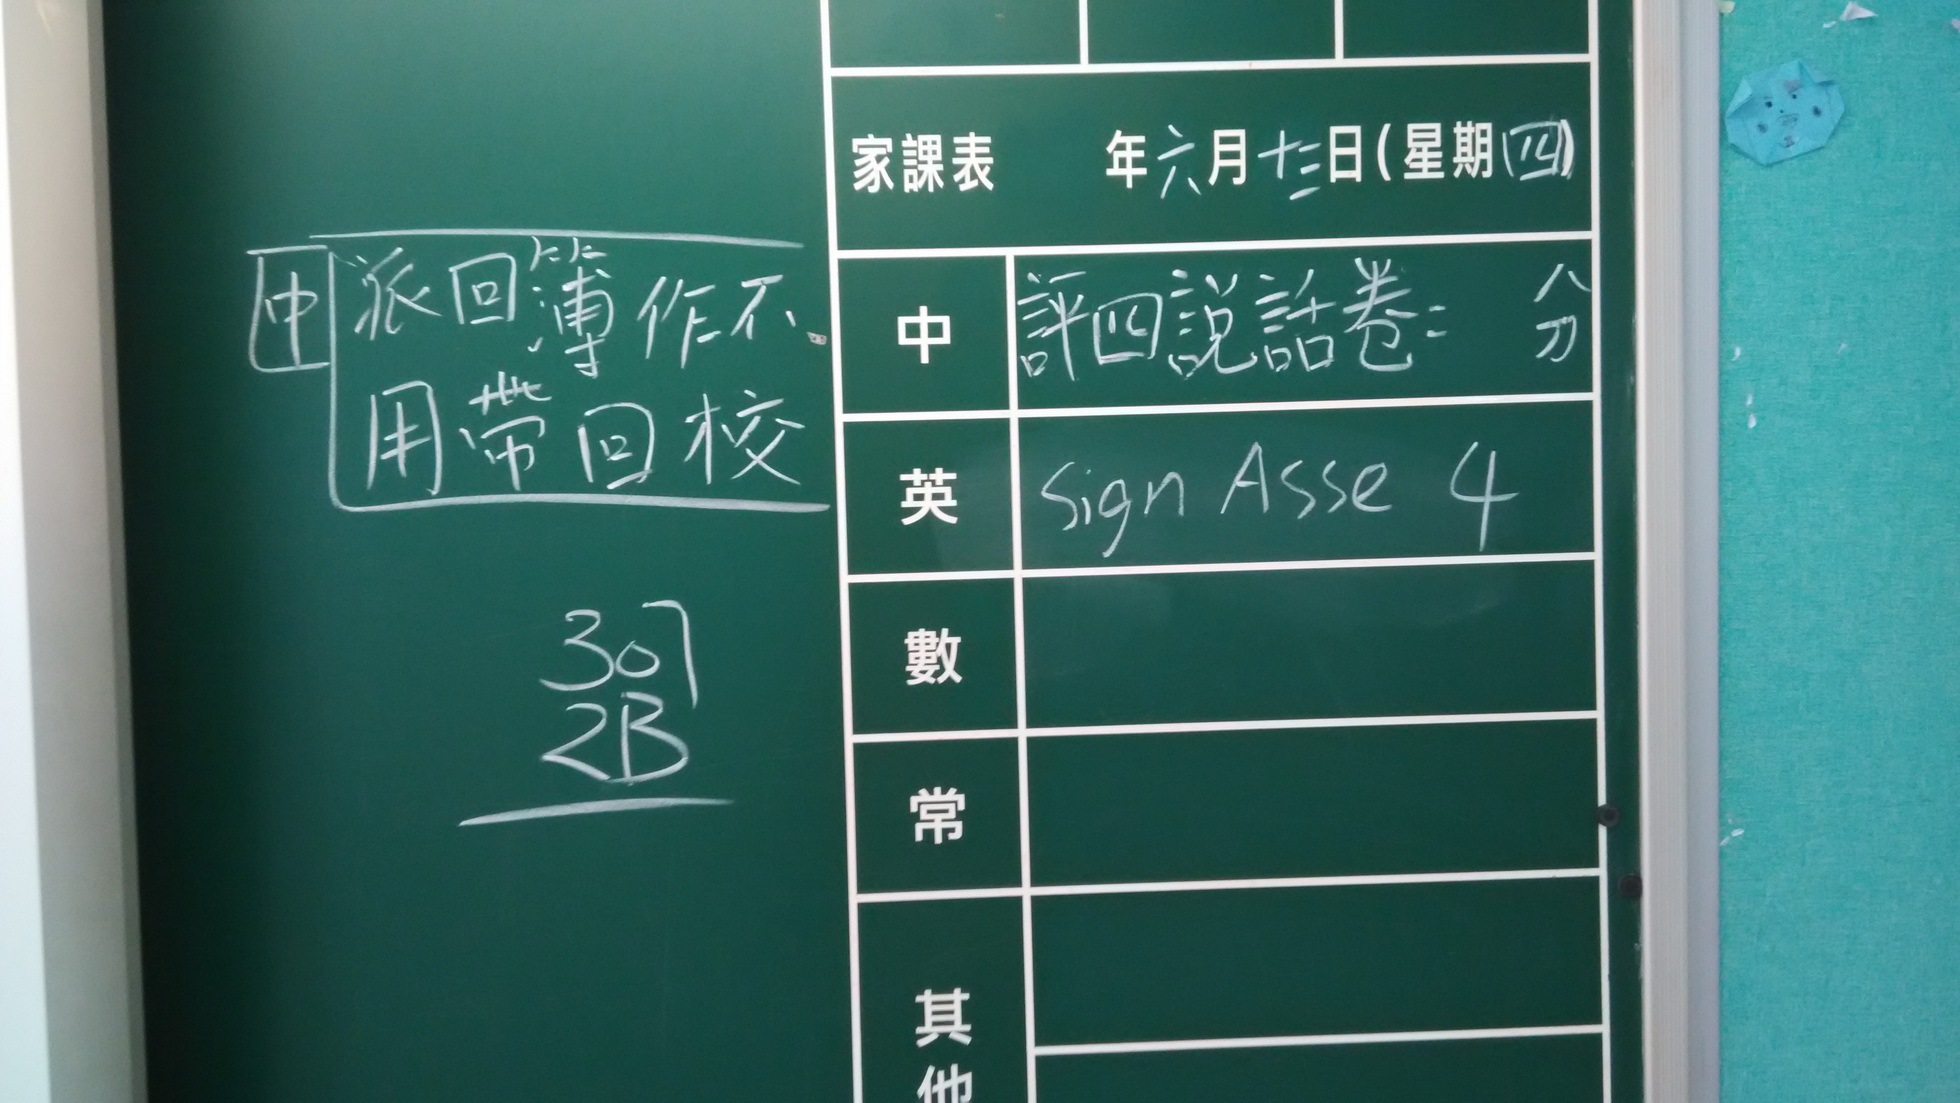 家課表 年六月十三日(星期四)
中 派回簿作不
用帶回校
307
2B
中 評四說話卷: 分
英 Sign Asse 4
數
常
其他